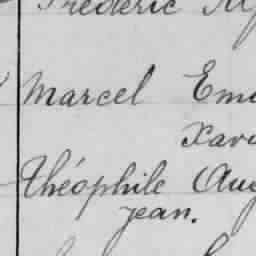 Frédéric Al
Marcel Em
Xavi
Théophile Aug
Jean.